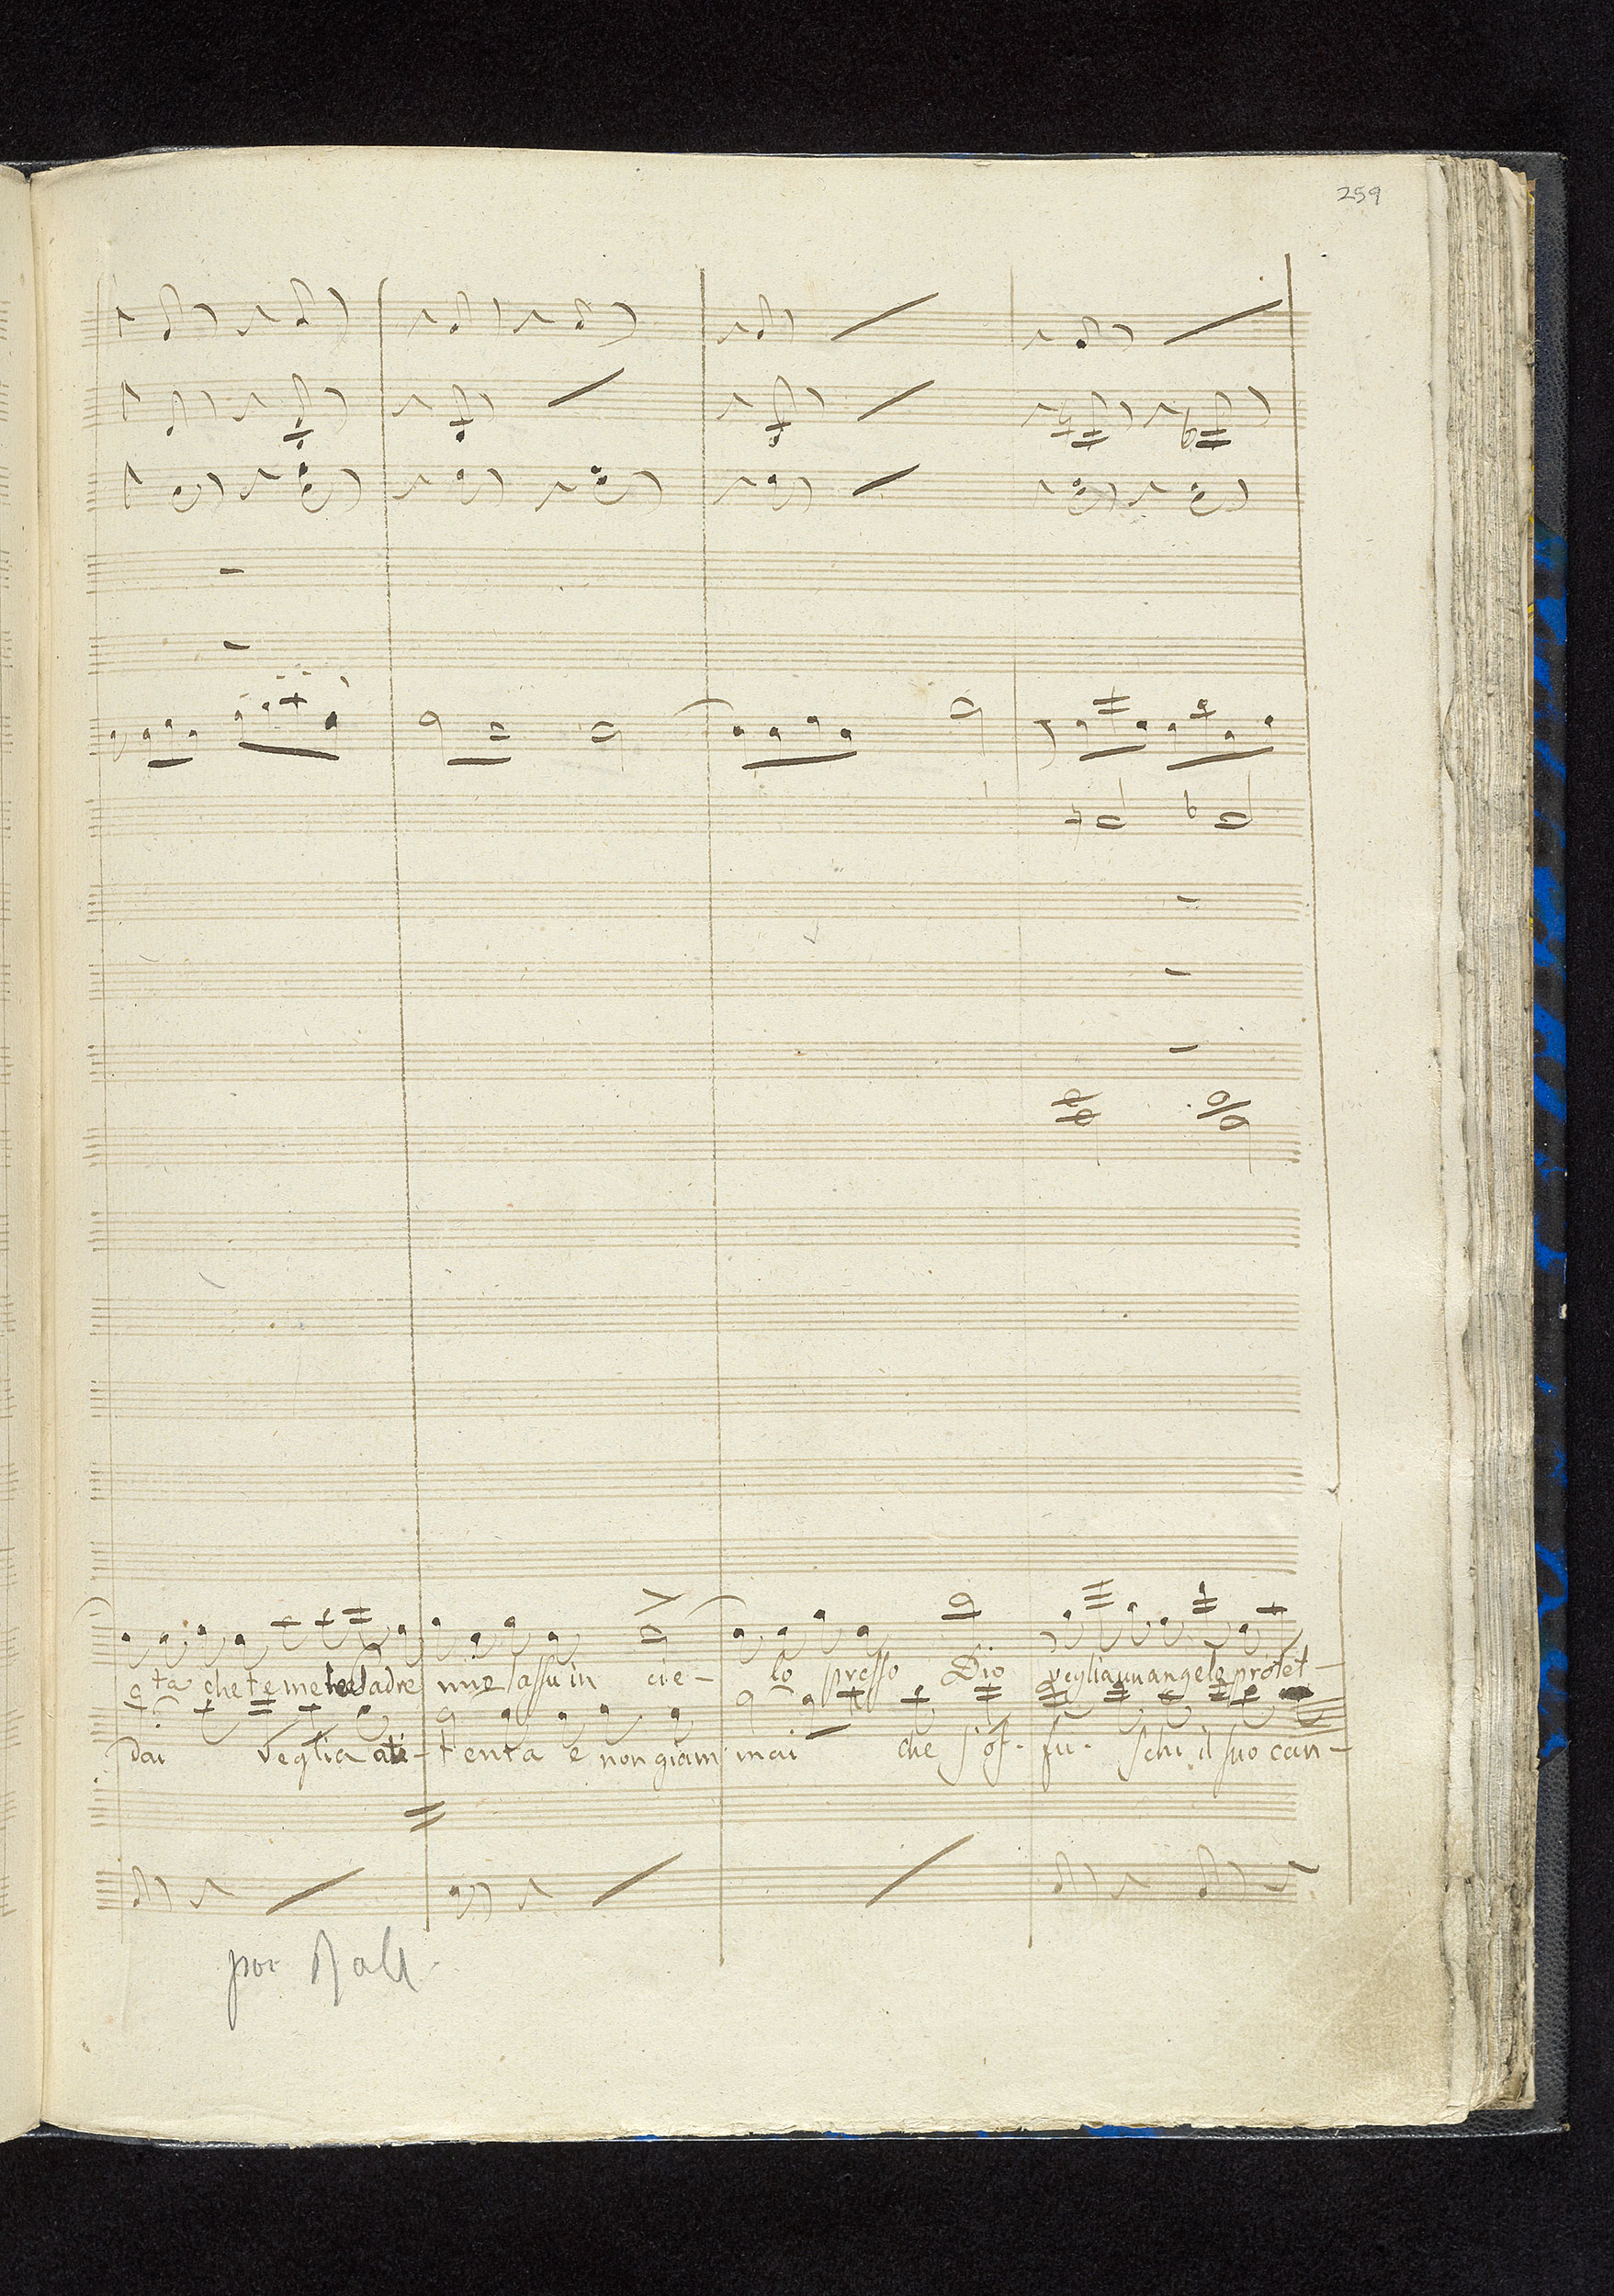 259
ta che temete Padre mio lassu in cie- lo presso Dio veglia un angel protet-
Dai veglia atten- tenta e non giam mai che s'of- fu- schi il suo can-
por